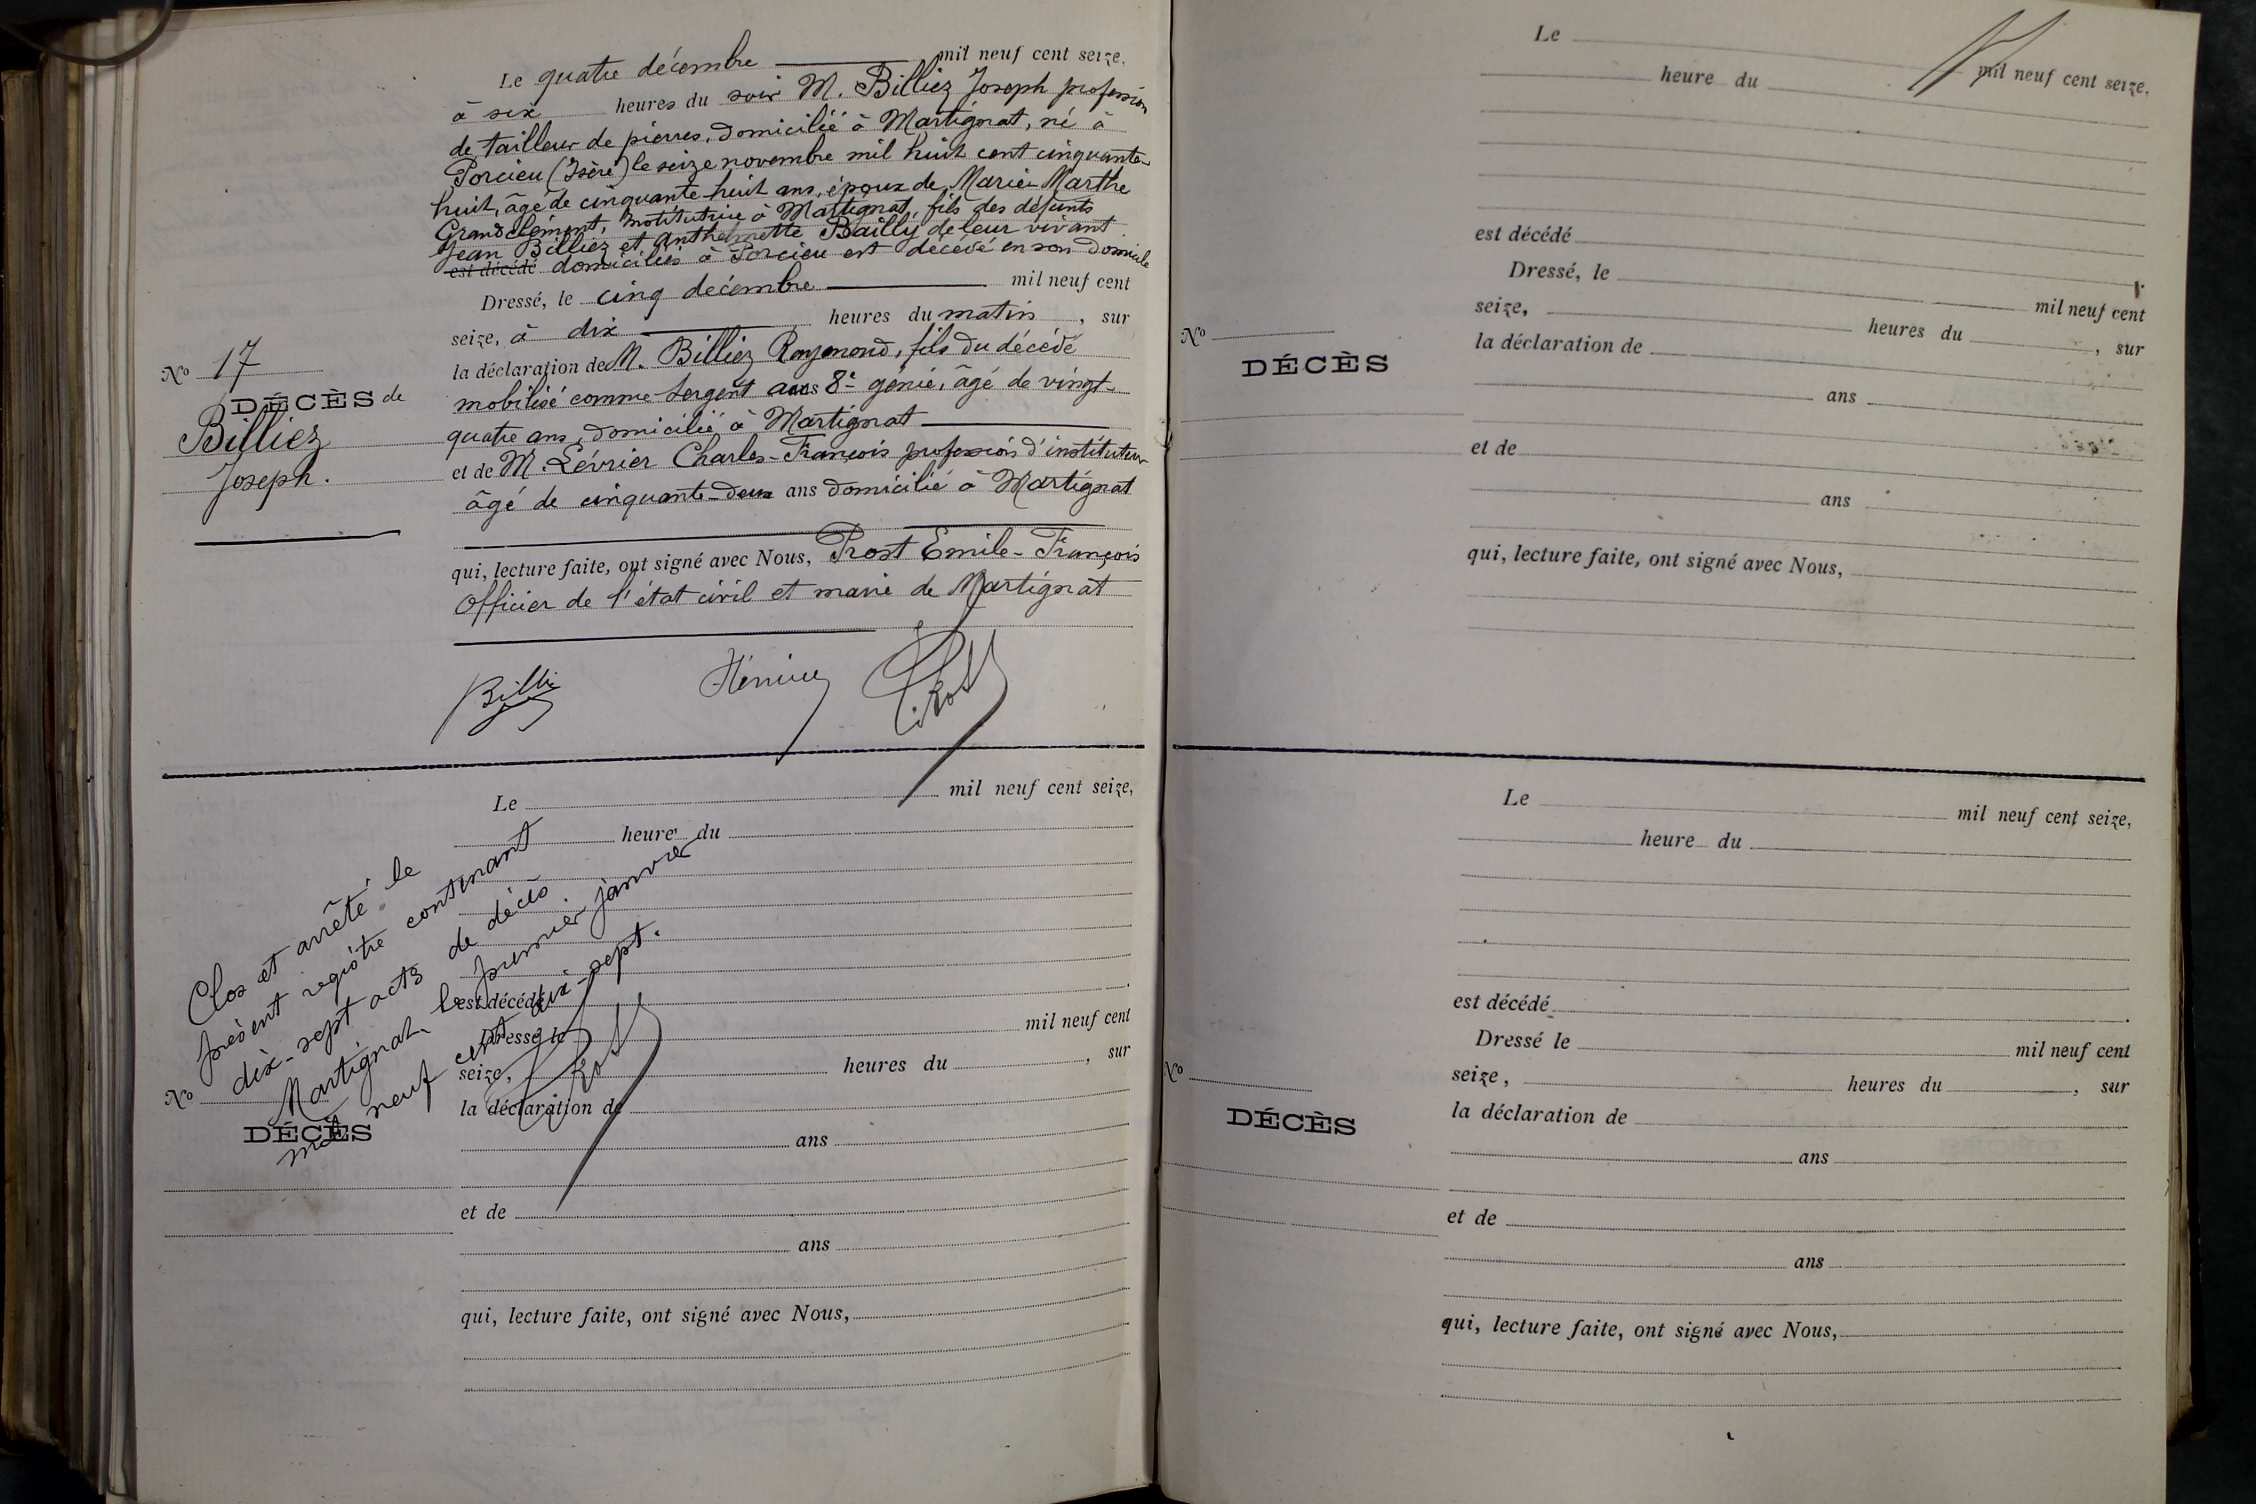 Le quatre décembre mil neuf cent seize,
à six heures du soir M. Billiez Joseph profession
de tailleur de pierres, domicilié à Martignat, né à
Porcieu (Isère) le seize novembre mil huit cent cinquante-
huit, âgé de cinquante-huit ans, époux de Marie Marthe
Grandclément, institutrice à Martignat, fils des défunts
Jean Billiez et Anthelmette Bailly de leur vivant
est décédé domiciliés à Porcieu est décédé en son domicile
Dressé, le cinq décembre mil neuf cent
seize, à dix heures du matin, sur
la déclaration de M. Billiez Raymond, fils du décédé
mobilisé comme sergent au 8e génie, âgé de vingt-
quatre ans, domicilié à Martignat
et de M. Lévrier Charles-François profession d'instituteur
âgé de cinquante-deux ans domicilié à Martignat
qui, lecture faite, ont signé avec Nous, Prost Emile-François
Officier de l'état civil et maire de Martignat
No 17
DÉCÈS de
Billiez
Joseph.
Billiez
Prost
Le mil neuf cent seize,
heure du
est décédé
Dressé le mil neuf cent
seize, heures du , sur
la déclaration de
ans
et de
ans
qui, lecture faite, ont signé avec Nous,
No
DÉCÈS
Clos et arrêté le
présent registre contenant
dix-sept actes de décès
Martignat le premier janvier
mil neuf cent dix-sept.
Prost
Le mil neuf cent seize,
heure du
est décédé
Dressé, le mil neuf cent
seize, heures du , sur
la déclaration de
ans
et de
ans
qui, lecture faite, ont signé avec Nous,
No
DÉCÈS
Le mil neuf cent seize,
heure du
est décédé
Dressé le mil neuf cent
seize, heures du , sur
la déclaration de
ans
et de
ans
qui, lecture faite, ont signé avec Nous,
No
DÉCÈS